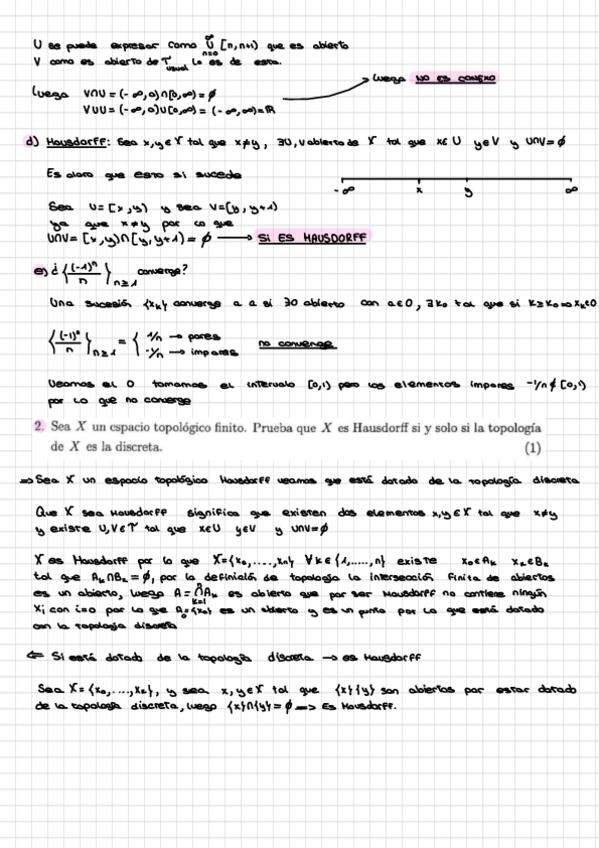 U se puede expresar como ∞∪n=0 [n,n+1) que es abierto
V como es abierto de τusual lo es de esta.
Luego V∩U = (-∞,0)∩[0,∞) = ∅
Luego NO ES CONEXO
V∪U = (-∞,0)∪[0,∞) = (-∞,∞) = ℝ
d) Hausdorff: Sea x,y∈X tal que x≠y, ∃U,V abierto de X tal que x∈U y∈V y U∩V=∅
Es claro que esto si sucede
-∞ x y ∞
Sea U=[x,y) y sea V=[y,y+1)
ya que x≠y por lo que
U∩V=[x,y)∩[y,y+1)=∅ → SI ES HAUSDORFF
e) ¿{(-1)ⁿ/n}n≥1 converge?
Una sucesión {xk} converge a a si ∃O abierto con a∈O, ∃k₀ tal que si k≥k₀ ⇒ xk∈O
{(-1)ⁿ/n}n≥1 = { 1/n → pares
-1/n → impares
no converge
Veamos el 0 tomamos el intervalo [0,1) pero los elementos impares -1/n∉[0,1)
por lo que no converge
2. Sea X un espacio topológico finito. Prueba que X es Hausdorff si y solo si la topología
de X es la discreta. (1)
⇒ Sea X un espacio topológico Hausdorff veamos que está dotado de la topología discreta
Que X sea Hausdorff significa que existen dos elementos x,y∈X tal que x≠y
y existe U,V∈τ tal que x∈U y∈V y U∩V=∅
X es Hausdorff por lo que X={x₀,....,xn} ∀k∈{1,.....,n} existe x₀∈Ak xk∈Bk
tal que Ak∩Bk=∅, por la definición de topología la intersección finita de abiertos
es un abierto, luego A = n∩k=1 Ak es abierto que por ser Hausdorff no contiene ningún
xi con i≠0 por lo que A={x₀} es un abierto y es un punto por lo que está dotado
con la topología discreta
⇐ Si está dotado de la topología discreta → es Hausdorff
Sea X={x₀,....,xk}, y sea x,y∈X tal que {x}{y} son abiertos por estar dotado
de la topología discreta, luego {x}∩{y}=∅ ⇒ Es Hausdorff.